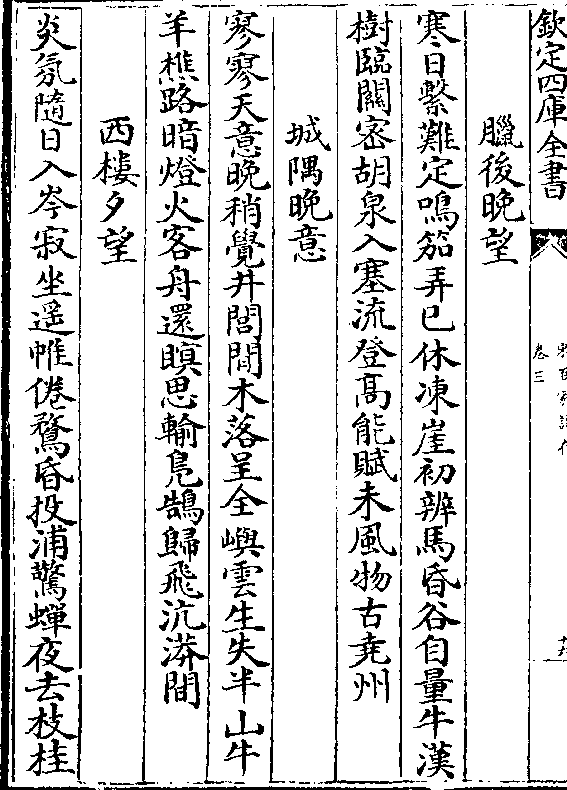 欽定四庫全書
卷三
臘後晚望
寒日繫難定鳴笳弄已休凍崖初辨馬昏谷自量牛漢
樹臨關宻胡泉入塞流登高能賦未風物古堯州
城隅晚意
寥寥天意晚稍覺井閭閒木落呈全嶼雲生失半山牛
羊樵路暗燈火客舟還瞑思輸鳬鵠歸飛沆漭間
西樓夕望
炎氛隨日入岑寂坐遥帷倦鶩昏投浦驚蟬夜去枝桂